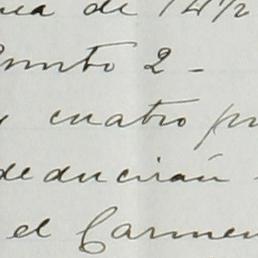 de 14 1/2
Punto 2 -
y cuatro
deducirán
el Carmen